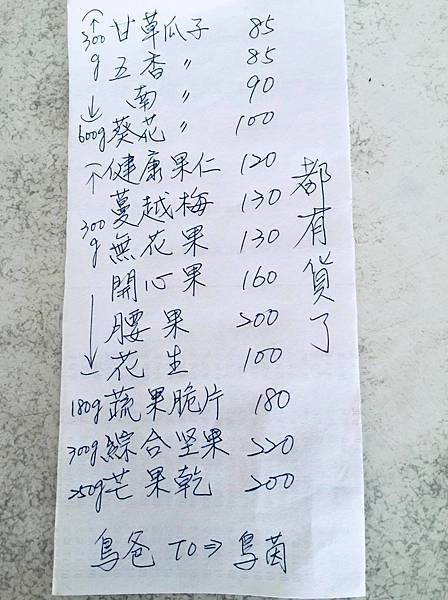 300g 甘草瓜子 85
五香 〃 85
南 〃 90
600g 葵花 〃 100
健康果仁 120
蔓越梅 130
300g 無花果 130
開心果 160
腰果 200
花生 100
180g 蔬果脆片 180
300g 綜合坚果 220
250g 芒果乾 200
都有貨了
鳥爸 TO⇒ 鳥茵